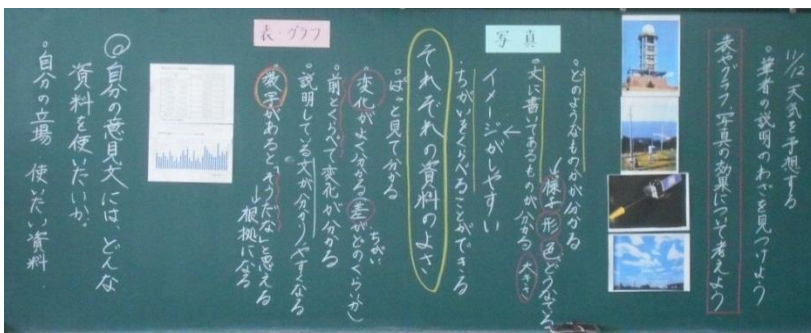 11/12 天気を予想する
◦筆者の説明のわざを見つけよう
表やグラフ、写真の効果について考えよう
写真
◦どのようなものか分かる
様子 形 色 どうなってる
◦文に書いてあるものが分かる 大きさ
イメージがしやすい
◦ちがいをくらべることができる
それぞれの資料のよさ
表・グラフ
◦ぱっと見て分かる
ちがい
◦変化がよく分かる(差がどのくらいか)
◦前とくらべて変化が分かる
◦説明している文が分かりやすくなる
◦数字があると「そうだな」と思える
→根拠になる
◎自分の意見文には、どんな
資料を使いたいか。
◦自分の立場 使いたい資料